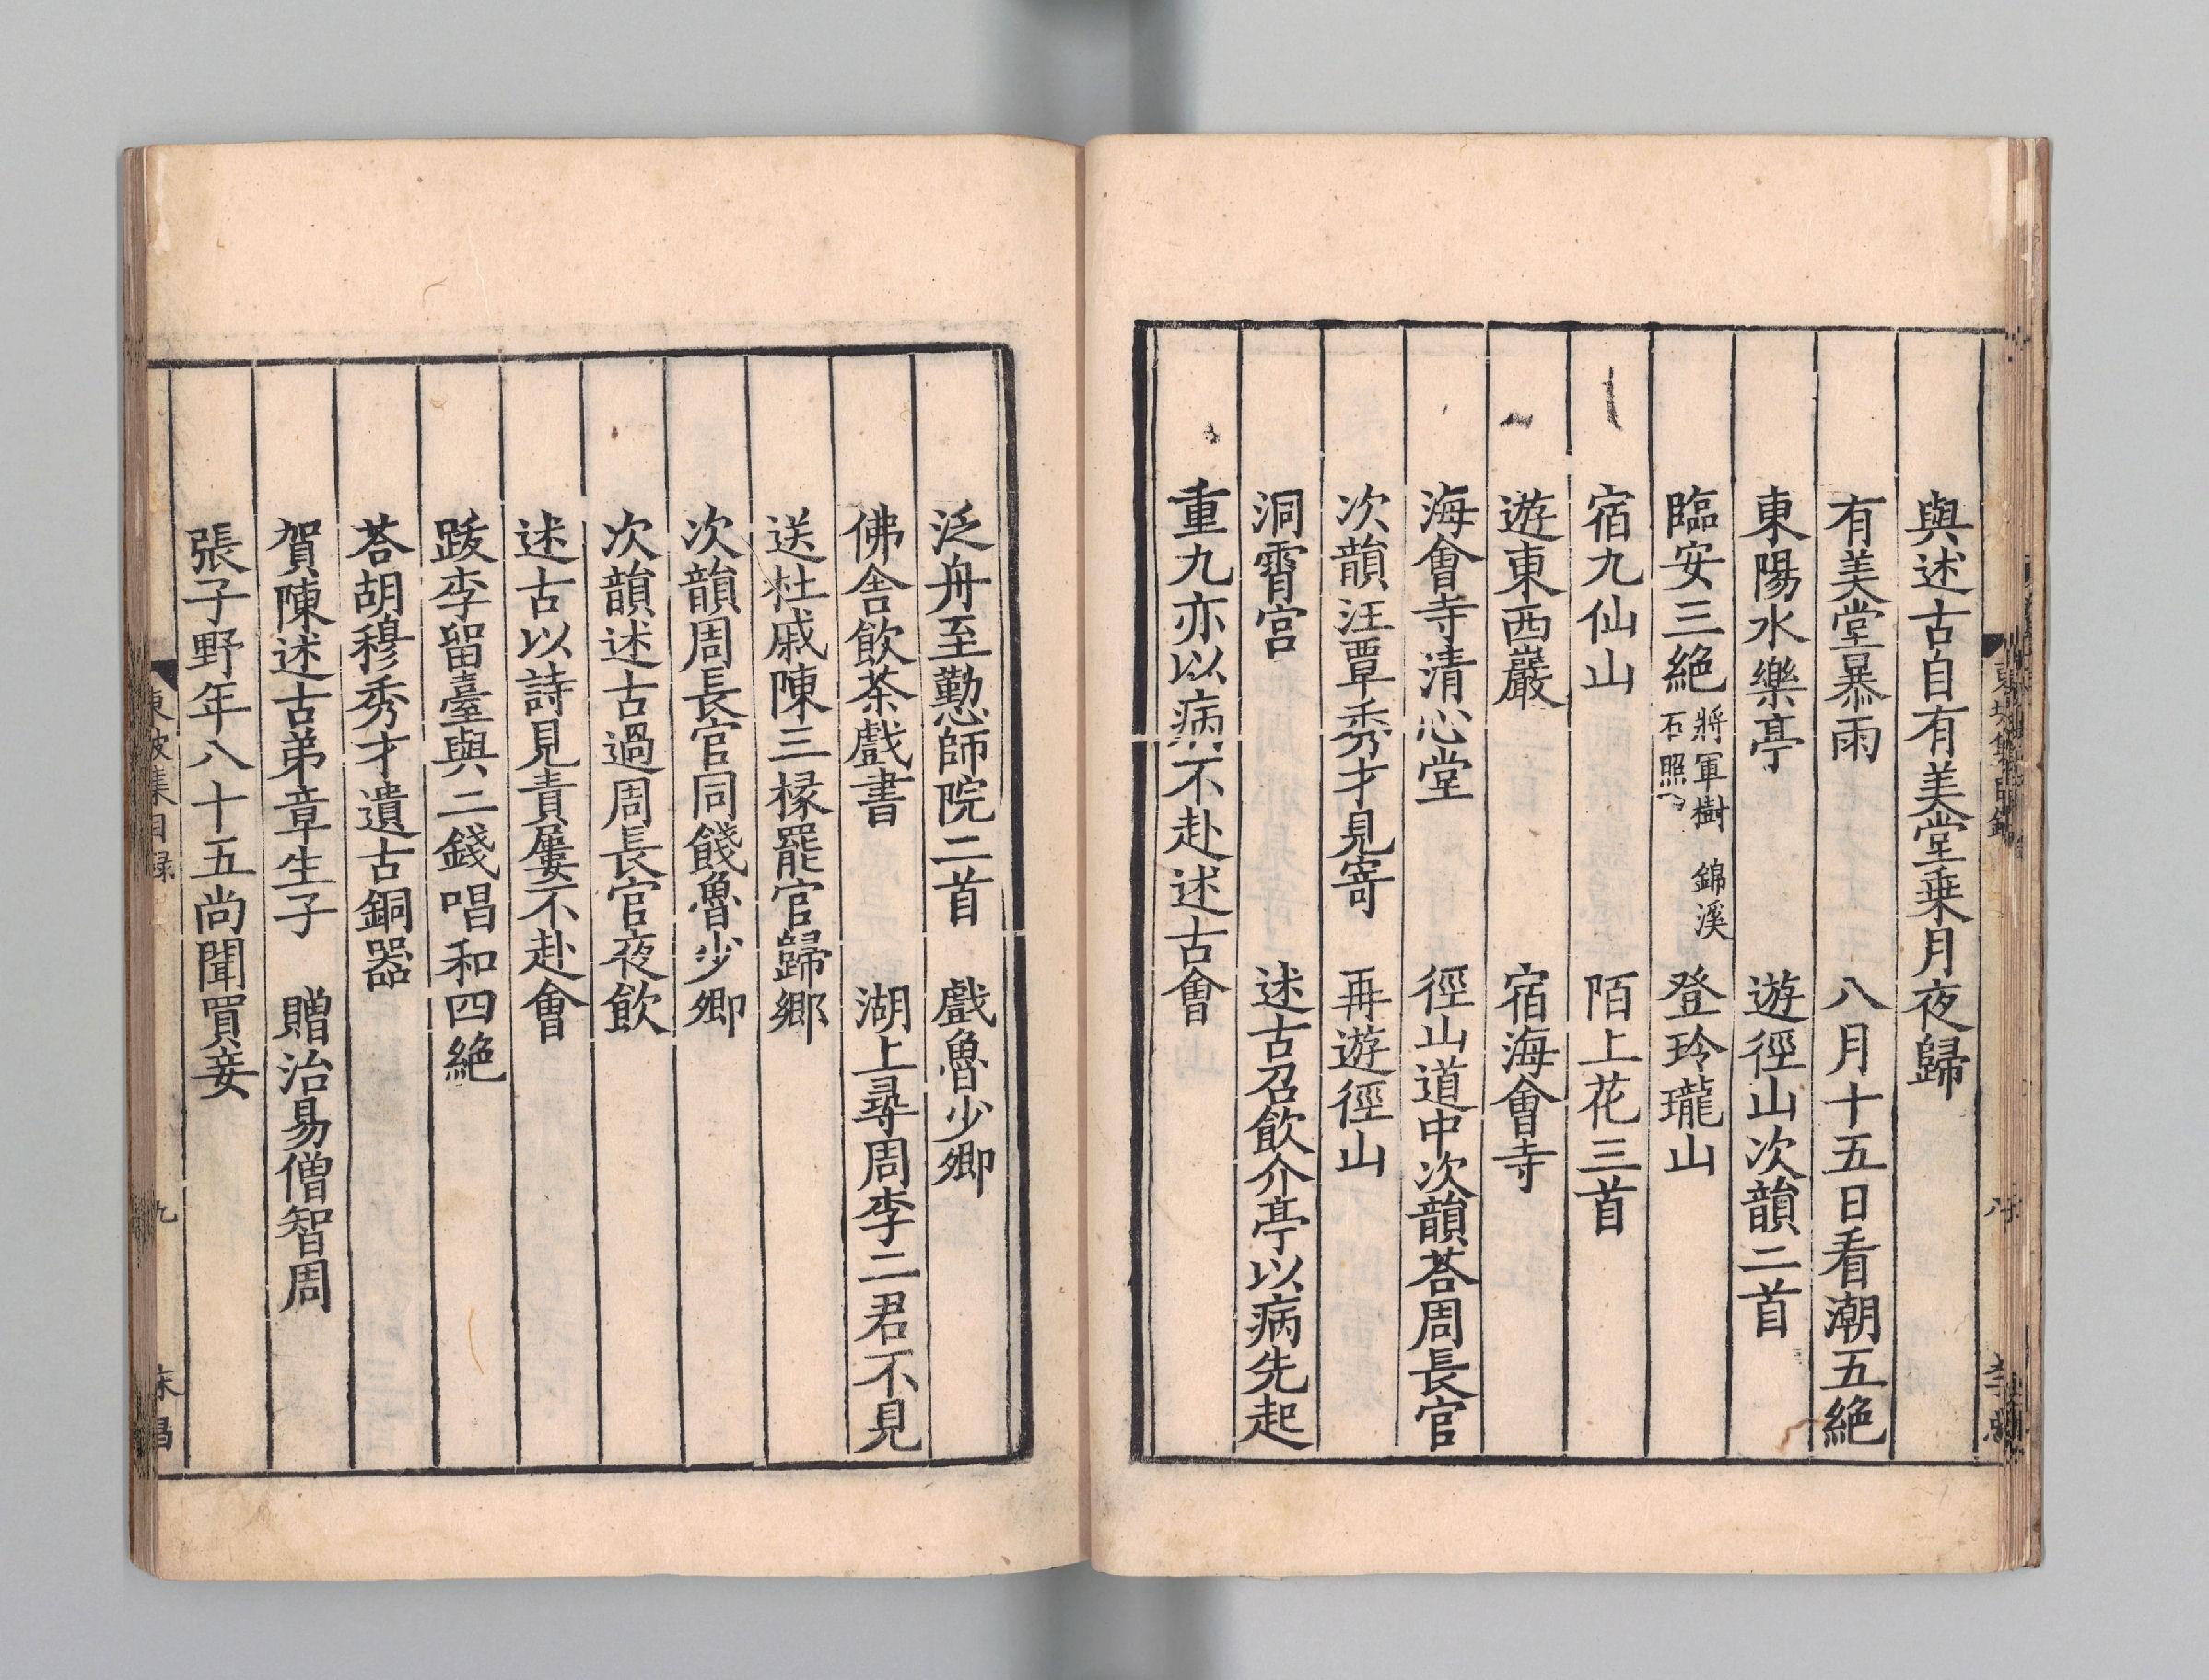 與述古自有美堂乗月夜歸
有美堂暴雨　八月十五日看潮五絶
東陽水樂亭　遊徑山次韻二首
臨安三絶 將軍樹 錦溪 石照 登玲瓏山
宿九仙山　陌上花三首
遊東西巖　宿海會寺
海會寺清心堂　徑山道中次韻荅周長官
次韻汪覃秀才見寄　再遊徑山
洞霄宮　述古召飲介亭以病先起
重九亦以病不赴述古會
泛舟至懃師院二首　戲魯少卿
佛舎飲茶戲書　湖上尋周李二君不見
送杜戚陳三掾罷官歸鄉
次韻周長官同餞魯少卿
次韻述古過周長官夜飲
述古以詩見責屢不赴會
跋李留臺與二錢唱和四絶
荅胡穆秀才遺古銅器
賀陳述古弟章生子　贈治易僧智周
張子野年八十五尚聞買妾
東坡集目録
九